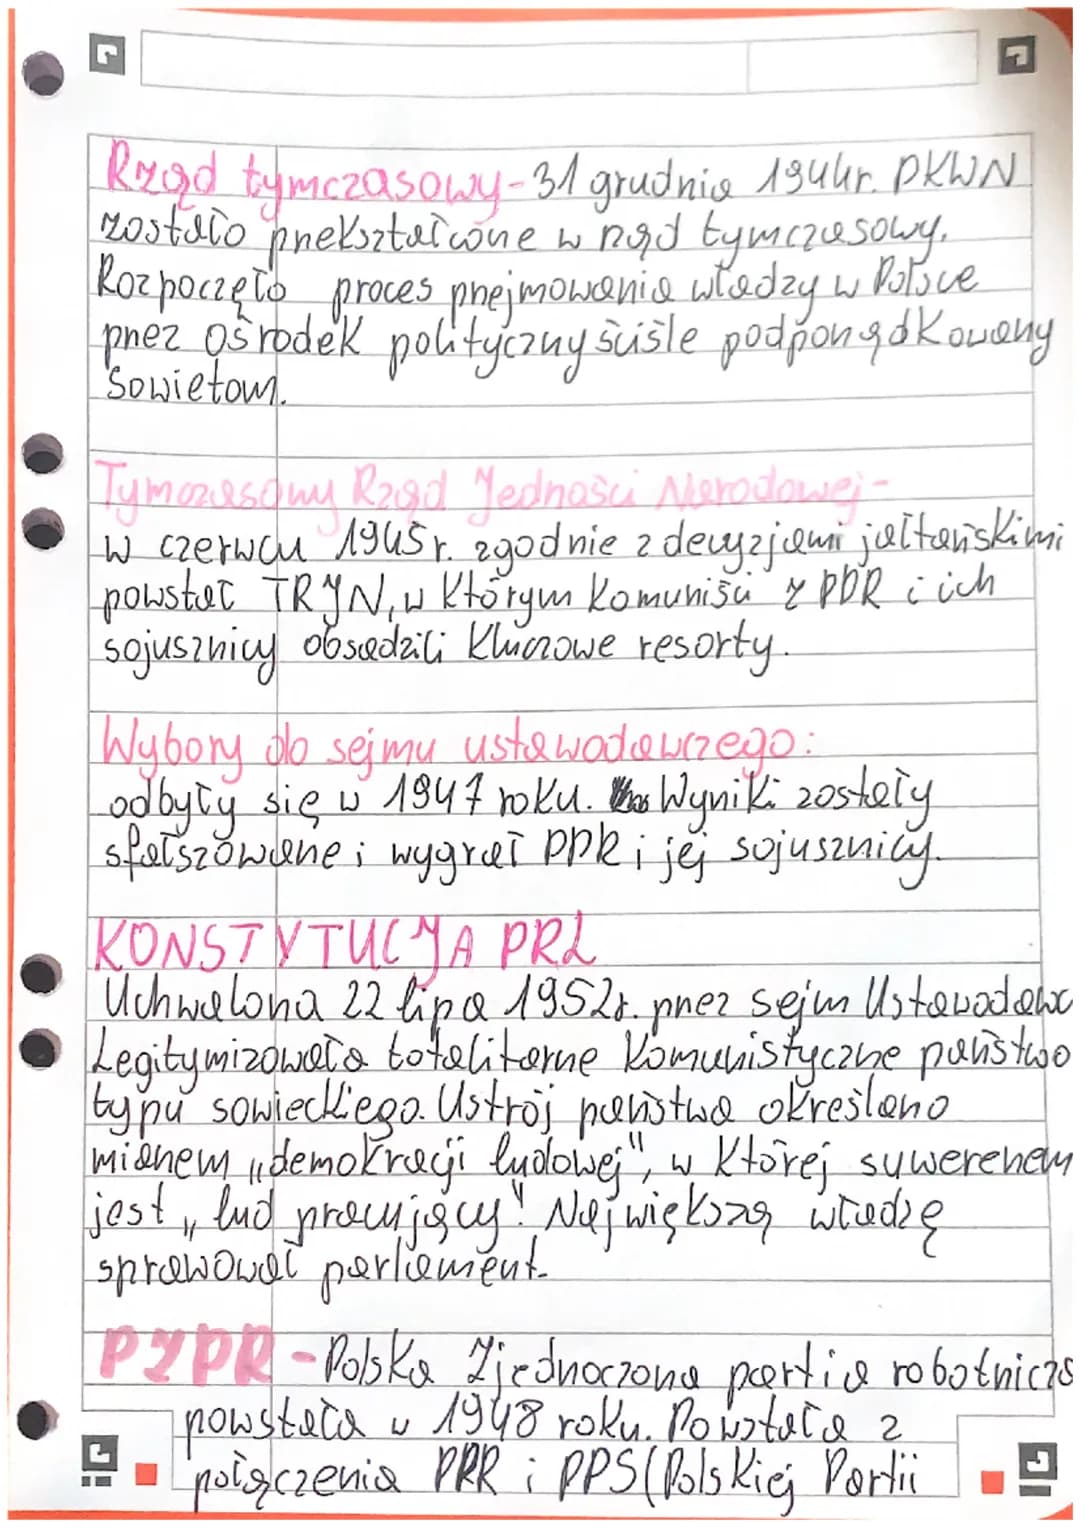 Rząd tymczasowy - 31 grudnia 1944r. PKWN
zostało przekształcone w rząd tymczasowy.
Rozpoczęło proces przejmowania władzy w Polsce
przez ośrodek polityczny ściśle podporządkowany
Sowietom.
Tymczasowy Rząd Jedności Narodowej -
w czerwcu 1945r. zgodnie z decyzjami jałtańskimi
powstał TRJN, w którym komuniści z PPR i ich
sojusznicy obsadzili kluczowe resorty.
Wybory do sejmu ustawodawczego:
odbyły się w 1947 roku. Wyniki zostały
sfałszowane i wygrał PPR i jej sojusznicy.
KONSTYTUCJA PRL
Uchwalona 22 lipca 1952r. przez sejm Ustawodawc
Legitymizowała totalitarne komunistyczne państwo
typu sowieckiego. Ustrój państwa określano
mianem „demokracji ludowej", w której suwerenem
jest „lud pracujący". Największą władzę
sprawował parlament.
PZPR - Polska Zjednoczona partia robotnicza
powstała w 1948 roku. Powstała z
połączenia PRR i PPS (Polskiej Partii